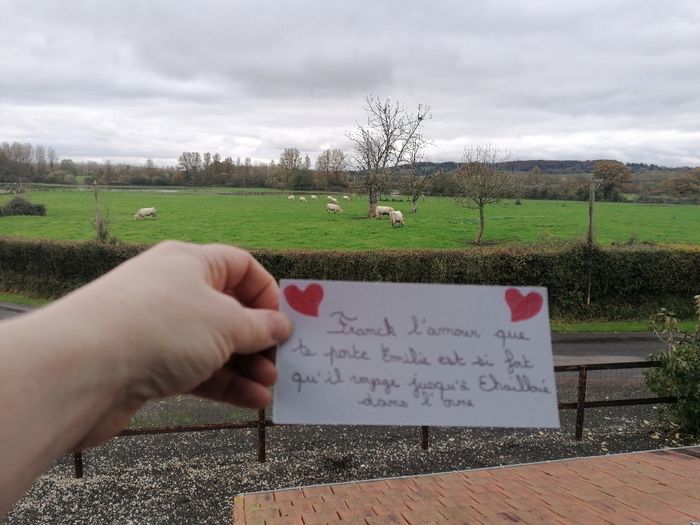 Franck l'amour que
te porte Emilie est si fort
qu'il voyage jusqu'à Ehoilloué
dans l'orne